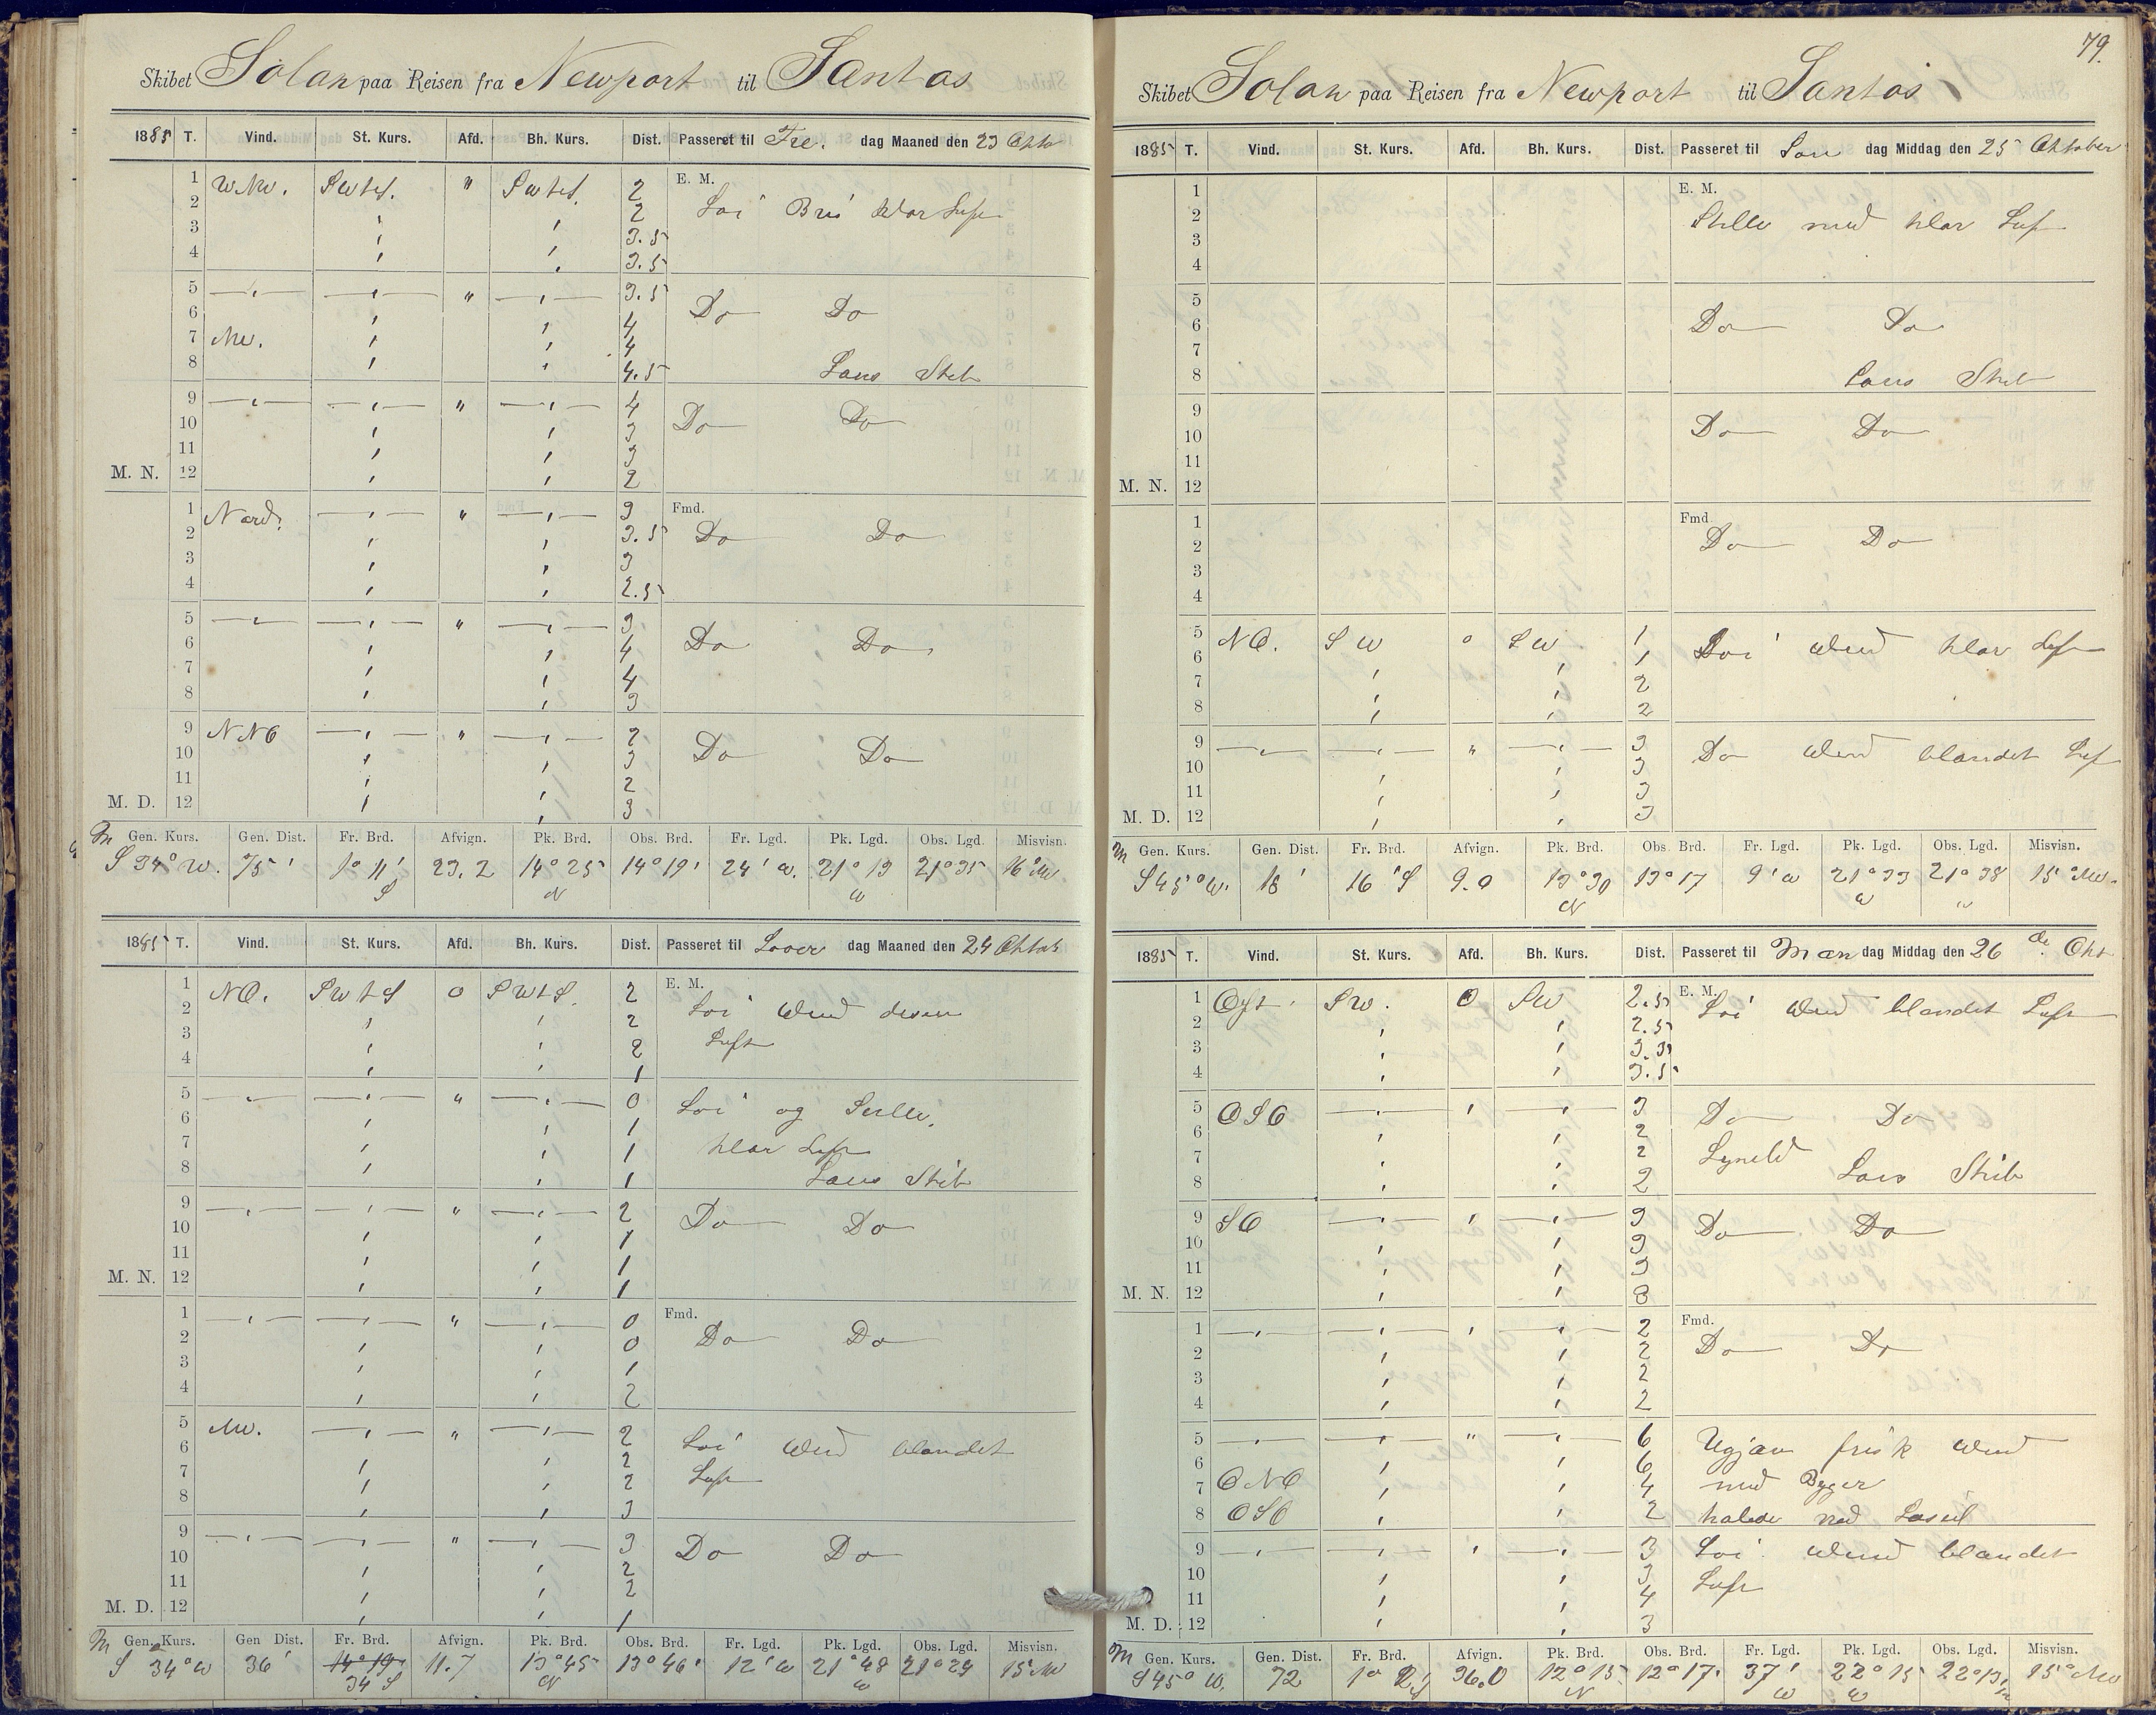 Skibet Solan paa Reisen fra Newport til Santos
1885 T. Vind. St. Kurs. Afd. Bh. Kurs. Dist. Passeret til Fre. dag Maaned den 23 Okto
E. M.
1 WNW. SWtS. " SWtS. 2
2 ' ' 2 Loi Bris klar Luft
3 ' ' 3.5
4 ' ' 3.5
5 —"— —"— " —"— 3.5
6 ' ' 4 Do Do
7 NW. ' ' 4
8 ' ' 4.5 Laus Skib
9 —"— —"— " —"— 4
10 ' ' 3 Do Do
11 ' ' 3
M. N. 12 ' ' 2
Fmd.
1 Nord. —"— " —"— 3
2 ' ' 3.5 Do Do
3 ' ' 3
4 ' ' 2.5
5 —"— —"— " —"— 3
6 ' ' 4 Do Do
7 ' ' 4
8 ' ' 3
9 NNO —"— " —"— 2
10 ' ' 3 Do Do
11 ' ' 2
M. D. 12 ' ' 3
M Gen. Kurs. Gen. Dist. Fr. Brd. Afvign. Pk. Brd. Obs. Brd. Fr. Lgd. Pk. Lgd. Obs. Lgd. Misvisn.
S 34° W. 75' 1° 11' S 23.2 14° 25 N 14° 19' 24' W. 21° 13 W 21° 35 16° NW
1885 T. Vind. St. Kurs. Afd. Bh. Kurs. Dist. Passeret til Løver dag Maaned den 24 Oktob
E. M.
1 NO. SWtS 0 SWtS. 2
2 ' ' 2 Loi Wind
3 ' ' 2 Luft
4 ' ' 1
5 —"— —"— " —"— 0
6 ' ' 1 Loi og Stille,
7 ' ' 1 klar Luft
8 ' ' 1 Laus Skib
9 —"— —"— " —"— 2
10 ' ' 1 Do Do
11 ' ' 1
M. N. 12 ' ' 1
Fmd.
1 —"— —"— " —"— 0
2 ' ' 0 Do Do
3 ' ' 1
4 ' ' 2
5 NW. —"— " —"— 2
6 ' ' 2 Loi Wind blandet
7 ' ' 2 Luft
8 ' ' 3
9 —"— —"— " —"— 3
10 ' ' 2 Do Do
11 ' ' 2
M. D. 12 ' ' 1
M Gen. Kurs. Gen Dist. Fr. Brd. Afvign. Pk. Brd. Obs. Brd. Fr. Lgd. Pk. Lgd. Obs. Lgd. Misvisn.
S 34° W 36' 14° 19' 34' S 11.7 13° 45 N 13° 46' 12' W 21° 48 W 21° 29 15° NW
79.
Skibet Solan paa Reisen fra Newport til Santos
1885 T. Vind. St. Kurs. Afd. Bh. Kurs. Dist. Passeret til Søn dag Middag den 25 Oktober
E. M.
1
2 Stille med klar Luf
3
4
5
6 Do Do
7
8 Laus Skib
9
10 Do Do
11
M. N. 12
Fmd.
1
2 Do Do
3
4
5 NO. SW 0 SW 1
6 ' ' 1 Loi Wind klar Luft
7 ' ' 2
8 ' ' 2
9 —"— —"— " —"— 3
10 ' ' 3 Do Wind blandet Luf
11 ' ' 3
M. D. 12 ' ' 3
M Gen. Kurs. Gen. Dist. Fr. Brd. Afvign. Pk. Brd. Obs. Brd. Fr. Lgd. Pk. Lgd. Obs. Lgd. Misvisn.
S 45° W. 18' 16' S 9.0 13° 30 N 13° 17 9' W 21° 33 W 21° 38 " 15° NW.
1885 T. Vind. St. Kurs. Afd. Bh. Kurs. Dist. Passeret til Man dag Middag den 26 de. Okt
E. M.
1 Ost. SW. 0 SW 2.5 Loi Wind blandet Luft
2 ' ' 2.5
3 ' ' 3.5
4 ' ' 3.5
5 OSO —"— ' —"— 3
6 ' ' 2 Do Do
7 ' ' 2 Lyneld
8 ' ' 2 Laus Skib
9 SO —"— ' —"— 3
10 ' ' 3 Do Do
11 ' ' 3
M. N. 12 ' ' 3
Fmd.
1 —"— —"— ' —"— 2
2 ' ' 2 Do Do
3 ' ' 2
4 ' ' 2
5 —"— —"— " —"— 6 Ugjæv frisk Wind
6 ' ' 6
7 ONO ' ' 4 med Byger
8 OSO ' ' 2 halede ned Laseil
9 —"— —"— ' —"— 3 Loi Wind blandet
10 ' ' 3 Luft
11 ' ' 4
M. D. 12 ' ' 3
M Gen. Kurs. Gen. Dist. Fr. Brd. Afvign. Pk. Brd. Obs. Brd. Fr. Lgd. Pk. Lgd. Obs. Lgd. Misvisn.
S 45° W. 72 1° 2' S 36.0 12° 15 N 12° 17' 37' W 22° 15 W 22° 13' 15° NW